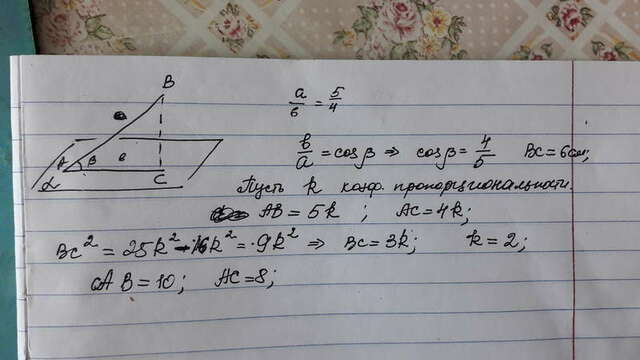 B
a
A β в
α C
a/в = 5/4
в/a = cosβ ⇒ cosβ = 4/5 BC = 6см;
Пусть k коэф. пропорциональности.
AB = 5k ; AC = 4k;
BC² = 25k² - 16k² = 9k² ⇒ BC = 3k; k = 2;
AB = 10; AC = 8;